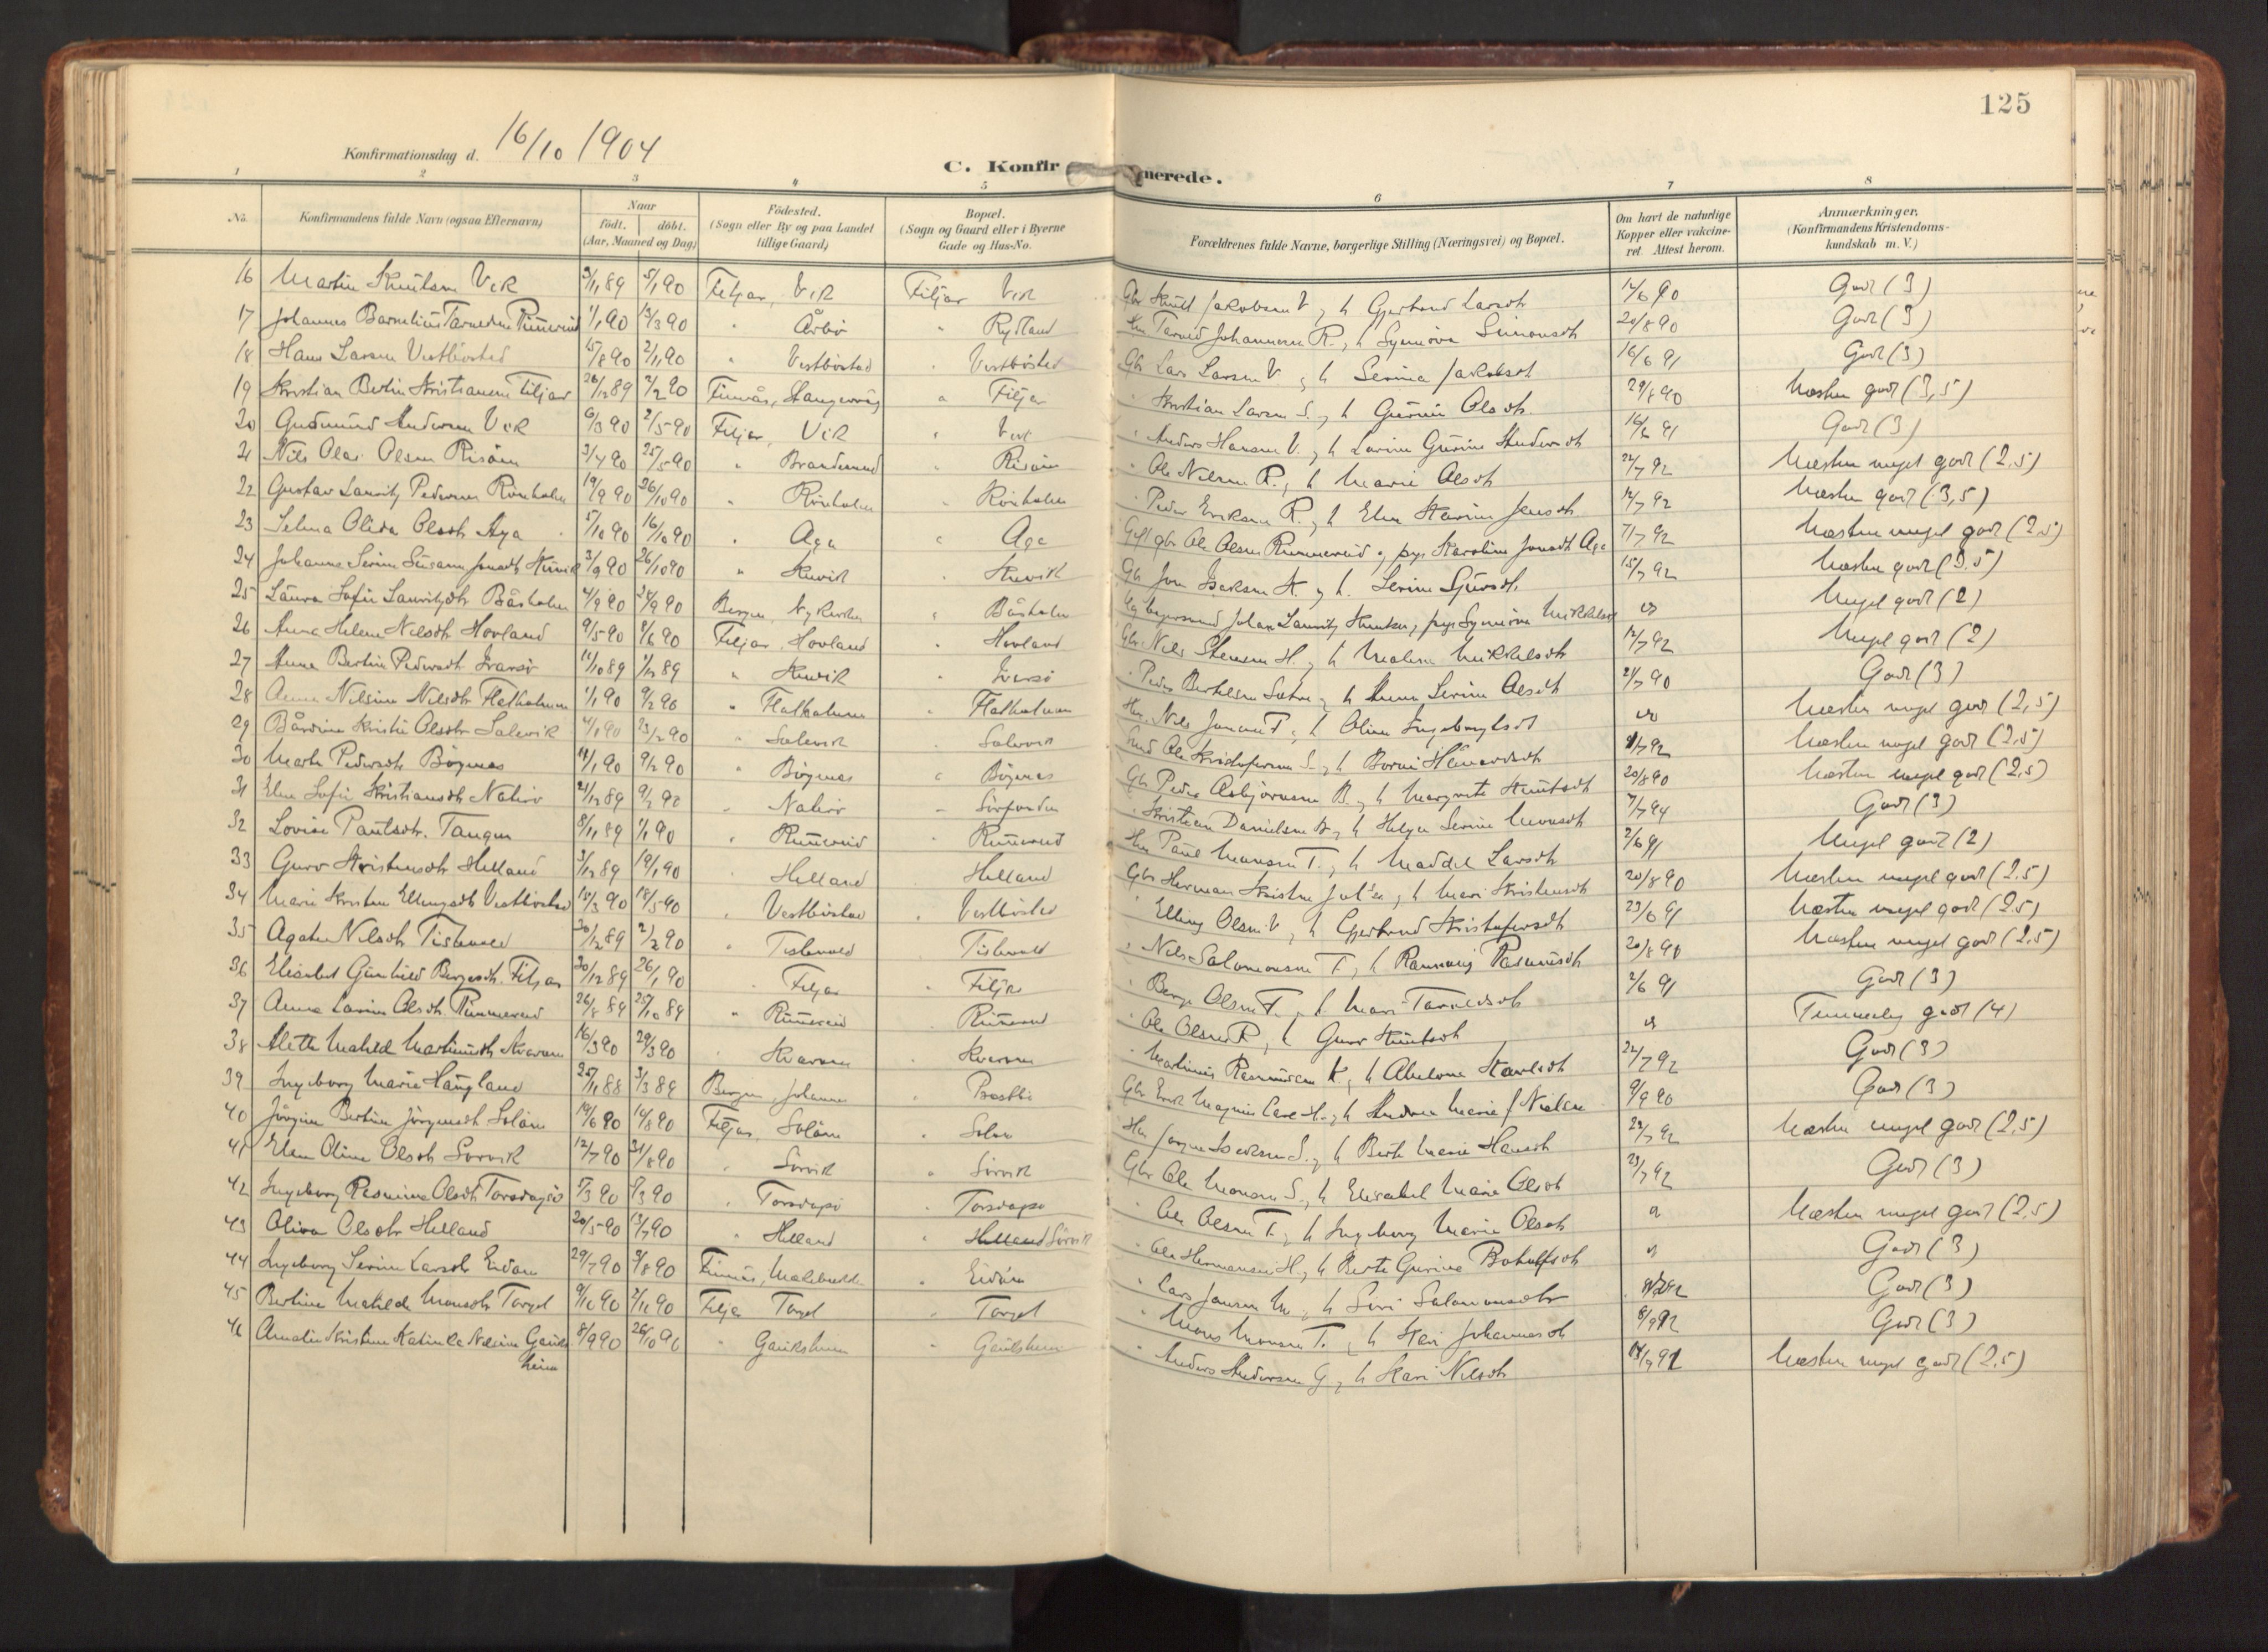 125
Konfirmationsdag d. 16/10 1904
C. Konfirmerede.
1 2 3 4 5 6 7 8
No. Konfirmandens fulde Navn (ogsaa Efternavn) Naar födt. döbt. (Aar, Maaned og Dag) Födested. (Sogn eller By og paa Landet tillige Gaard) Bopæl. (Sogn og Gaard eller i Byerne Gade og Hus-No. Forældrenes fulde Navne, borgerlige Stilling (Næringsvei) og Bopæl. Om havt de naturlige Kopper eller vakcineret Attest herom. Anmærkninger. (Konfirmandens Kristendomskundskab m. V.)
16 Martin Knutsen Vik 3/11 89 5/1 90 Fitjar, Vik Fitjar Vik Gbr Knut Jakobsen V. og h Gjertrud Larsdtr 12/6 90 God (3)
17 Johannes Tarnedsen Rimmereid 1/1 90 13/3 90 " Årbø " Rydland Hm Tarned Johannesen R., h Synnöva Simonsdtr 20/8 90 God (3)
18 Hans Larsen Vestbøstad 15/8 90 2/11 90 " Vestbøstad " Vestbøstad Gbr Lars Larsen V., h Serina Jakobsdt 16/6 91 God (3)
19 Kristian Bertin Kristiansen Fitjar 26/12 89 2/2 90 Finnås, " Fitjar " Kristian Larsen S., h Gurine Olsdtr. 29/8 90 Næsten god (3,5)
20 Gudmund Andersen Vik 6/3 90 2/5 90 Fitjar, Vik " Vik " Anders Hansen V., h Larine Gurine Andersdtr 16/6 91 God (3)
21 Nils Olai Olsen Risöen 3/4 90 25/5 90 " Brandesund " Risöen " Ole Nilsen R., h Marie Olsdt 22/7 92 Næsten meget god (2,5)
22 Gustav Lauritz Pedersen Rönholm 19/9 90 26/10 90 " Rönholm " Rönholm " Peder Eriksen R., h Elen Karine Jensdt 12/7 92 Næsten god (3,5)
23 Selma Olida Olsdtr Aga 5/10 90 16/10 90 " Aga " Aga Gift gbr Ole Olsen Rimmereid og pige Karoline Jonsdt Aga 7/7 92 Næsten meget god (2,5)
24 Johanna Serine Susanne Jonsdt 3/9 90 26/10 90 " " Gbr Jon Isaksen K. og h. Serine Sjursdt. 15/7 92 Næsten god (3.5)
25 Laura Sofie Lauritzdtr Båsholm 4/9 90 24/9 90 Bergen, Nykirken " Båsholm Johan Lauritz, pige Synnöva Mikkelsdt Meget god (2)
26 Anna Helene Nilsdtr Hovland 9/5 90 8/6 90 Fitjar Hovland " Hovland Gbr. Nils Steensen H., h Malene Mikkelsdtr 12/7 92 Meget god (2)
27 Anna Bertine Pedersdtr Ivarsö 14/10 89 1/12 89 " " Ivarsö " Peder Bertelsen Sæter, h Anna Serine Olsdt 21/7 90 God (3)
28 Anna Nilsine Nilsdtr Flatholmen 1/1 90 9/2 90 " Flatholmen " Flatholmen Hm. Nils Jonsen F., h Oline Ingebrigtsdt Næsten meget god (2,5)
29 Bårdine Kristi Olsdtr Salevik 4/1 90 23/2 90 " Salevik " Salevik Ole Kristofersen S., h Borni Håvardsdt /7 92 Næsten meget god (2,5)
30 Marta Pedersdtr Bögenes 11/1 90 9/2 90 " Bögenes " Bögenes Gbr Peder Asbjörnsen B., h Margrete Knutsdt 20/8 90 Næsten meget god (2,5)
31 Elen Sofie Kristiansdtr 21/12 89 9/2 90 " " " Kristian Danielsen, h Helga Serine Monsdt 7/7 94 God (3)
32 Lovise Paulsdtr. Tangen 8/11 89 1/1 90 " Rimmereid " Rimmereid Hm Paul Monsen T., h Maddel Larsdtr 2/6 91 Meget god (2)
33 Guro Kristensdtr Helland 3/12 89 19/1 90 " Helland " Helland Gbr Herman Kristen, h Mari Kristensdt 20/8 90 Næsten meget god (2.5)
34 Marie Kristine Ellingsdtr Vestbøstad 15/3 90 18/5 90 " Vestbøstad " Vestbøstad " Elling Olsen V., h Gjertrud Kristofersdtr 23/6 91 Næsten meget god (2.5)
35 Agate Nilsdtr Tislevold 30/12 89 2/2 90 " Tislevold " Tislevold " Nils Salomonsen T., h Rannveig Rasmusdt 20/8 90 Næsten meget god (2,5)
36 Elisabet Gunhild Bergesdt. Fitjar 30/12 89 26/1 90 " Fitjar " Fitjar " Berge Olsen F., h Mari Tarnedsdt 2/6 91 God (3)
37 Anna Larine Olsdtr Rimmereid 26/8 89 25/10 89 " Rimmereid " Rimmereid " Ole Olsen R., h Guro Knutsdt Temmelig god (4)
38 Aletta Matilde Martinusdt Kvernen 16/3 90 29/3 90 " Kvernen " Kvernen " Martinus Rasmussen K., h Abelone Karlsdt 22/7 92 God (3)
39 Ingeborg Marie Haugland 25/11 88 3/3 89 Bergen, Johannes " Gbr Erik Magnus H., h Andrea Marie Nielsen 9/9 90 God (3)
40 Jörgine Bertine Jörgensdt Solöen 19/6 90 14/8 90 Fitjar Solöen " Hm Jörgen Isaksen S., h Berte Marie Hansdt 22/7 92 Næsten meget god (2,5)
41 Elen Oline Olsdtr Sørvik 12/7 90 31/8 90 " Sørvik " Sørvik Gbr Ole Monsen S., h Elisabet Marie Olsdt 23/7 92 God (3)
42 Ingeborg Rasmine Olsdtr Torsdagsö 7/3 90 /3 90 " Torsdagsö " Torsdagsö " Ole Olsen T., h Ingeborg Marie Olsdt Næsten meget god (2,5)
43 Oliva Olsdtr Helland 20/5 90 13/7 90 " Helland " Helland Sørvik " Ole Hermansen H., h Berte Gurine Botolfsdt God (3)
44 Ingeborg Serine Larsdt Eidöen 29/7 90 3/8 90 Finnås, " Eidöen " Lars Jonsen, h Siri Salamonsdtr God (3)
45 Bertine Matilde Monsdtr Torget 9/10 90 2/11 90 Fitjar Torget " Torget " Mons Monsen T., h Kari Johannesdt 8/9 92 God (3)
46 Amalie Kristine Katinka Nilsine Gauksheim 8/9 90 26/10 90 " Gauksheim " Gauksheim " Anders Andersen G., h Kari Nilsdt Næsten meget god (2,5)